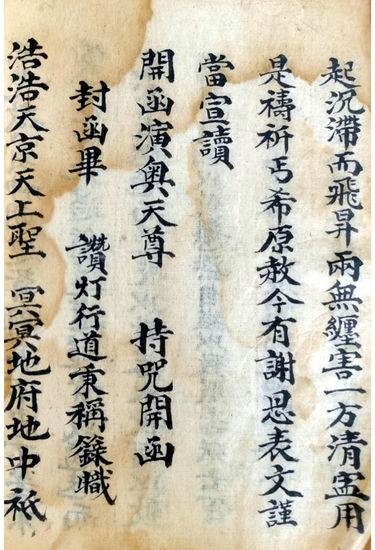 起沉滯而飛昇兩無纏害一方清寍用
是禱祈丐希原赦今有謝恩表文謹
當宣讀
開函演奥天尊 持咒開函
封函畢 讚灯行道秉稱籙職
浩浩天京天上聖 冥冥地府地中祇